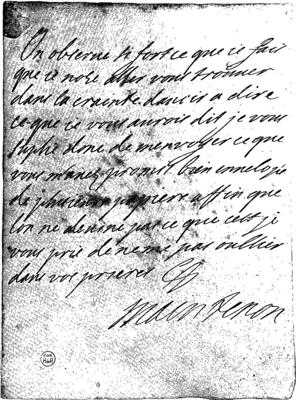 On observe si fort ce que ie fais
que ie n'oze aller vous trouver
dans la crainte davoir a dire
ce que ie vous aurois dit je vous
suplie donc de m'envoyer ce que
vous m'avez promis bien envelopé
de plusieurs papiers affin que
lon ne devine pas ce que cest je
vous prie de ne me pas oublier
dans vos prieres
Maintenon